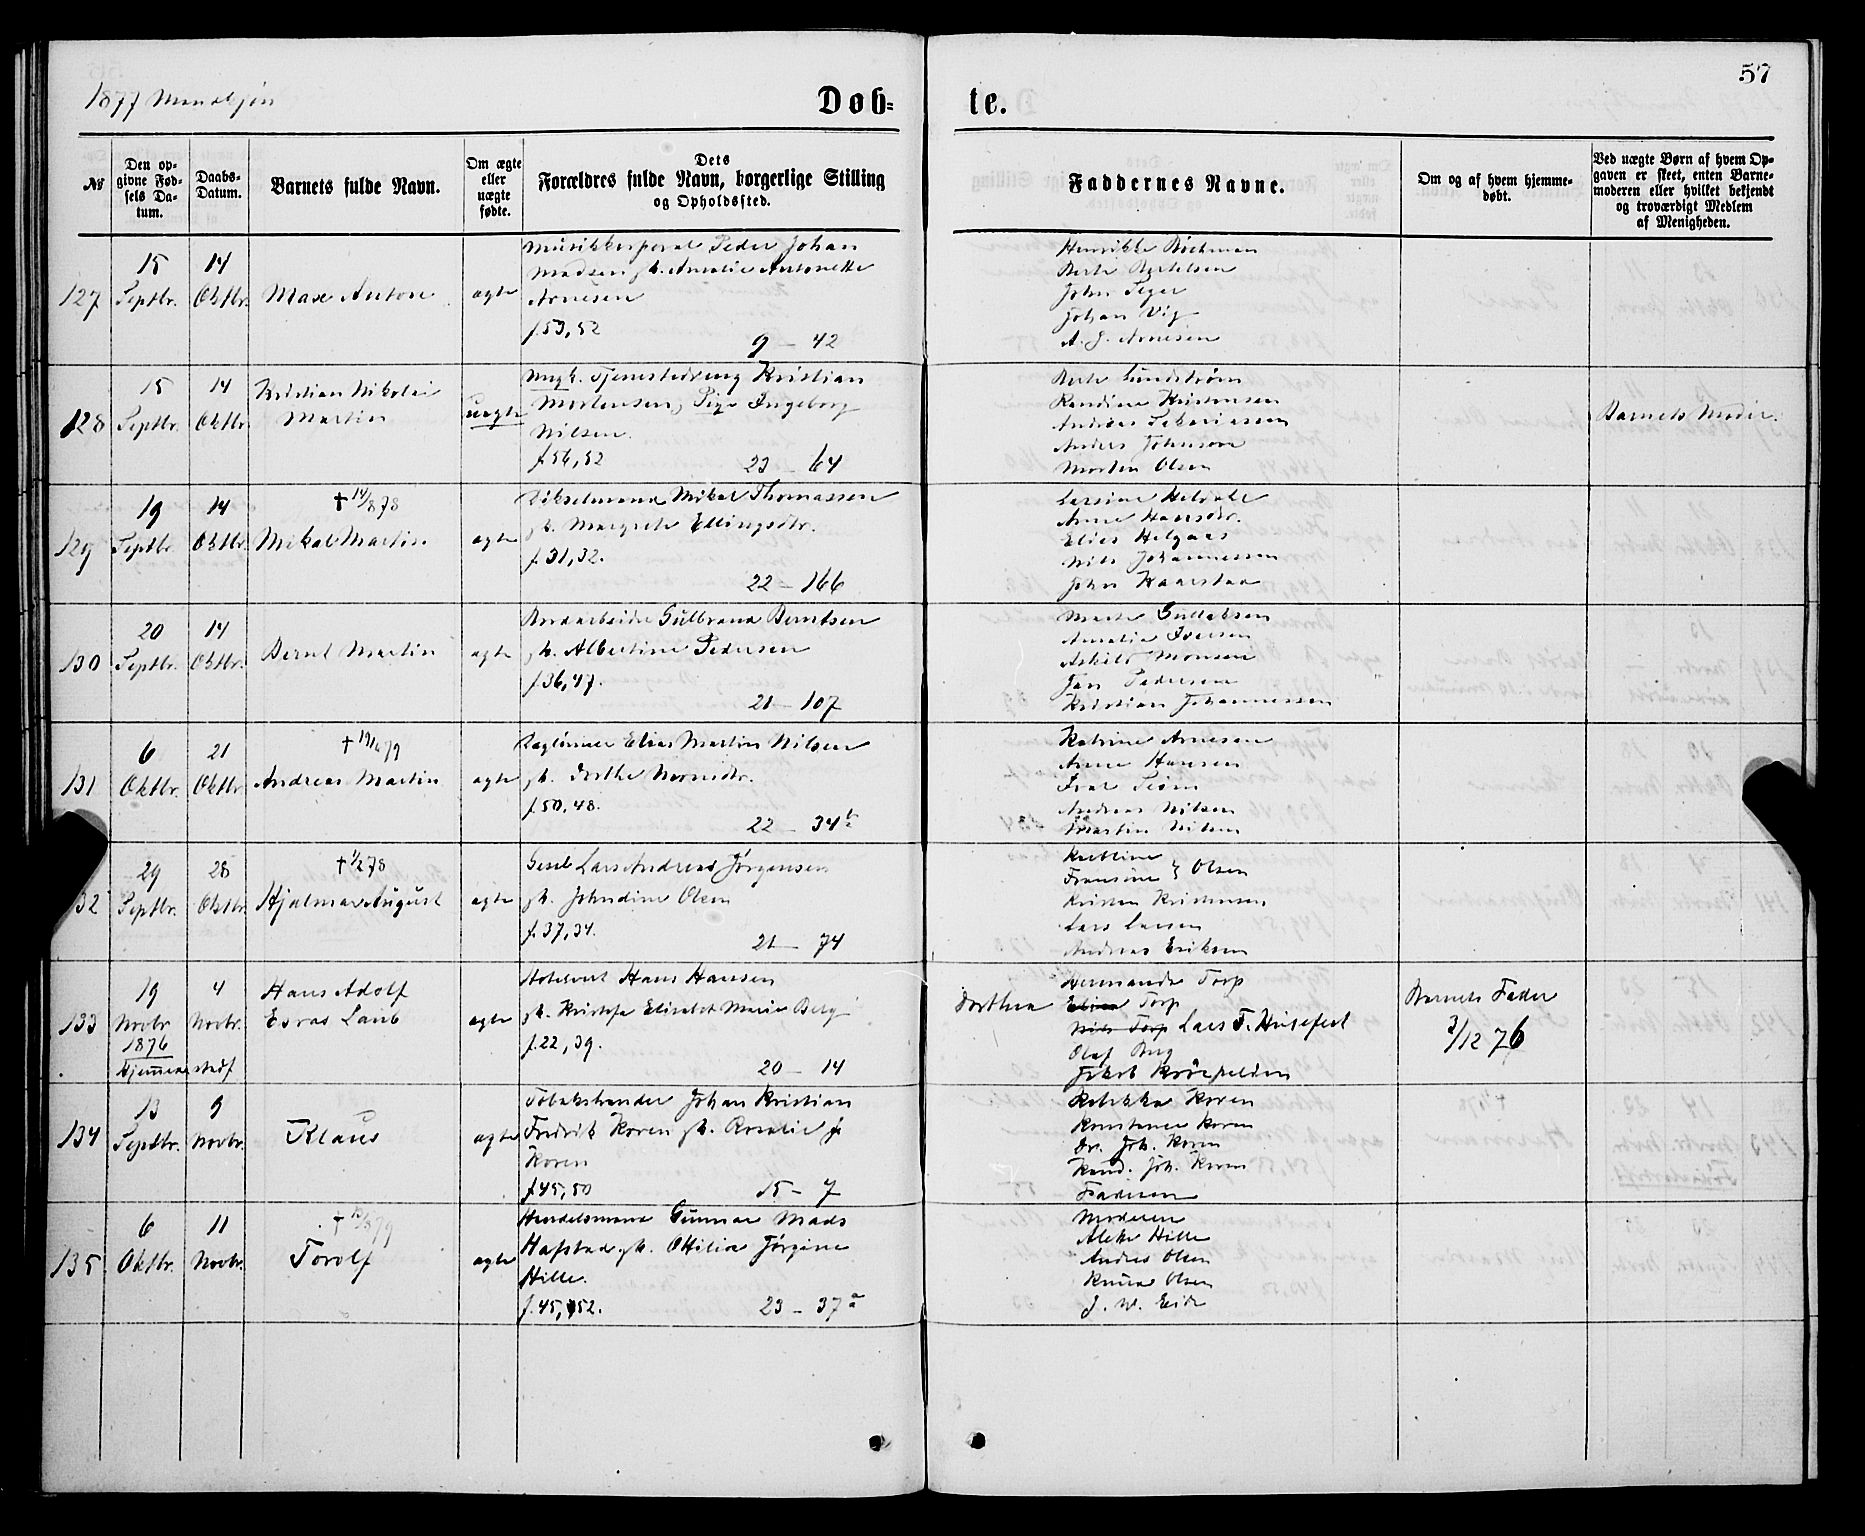 57
1877 Mandkjøn
Døb=
te.
№
Den op=
givne Fød=
sels Da=
tum.
Daabs=
Datum.
Barnets fulde Navn.
Om ægte
eller
uægte
fødte.
Dets
Forældres fulde Navn, borgerlige Stilling
og Opholdssted.
Faddernes Navne.
Om og af hvem hjemme=
døbt.
Ved uægte Børn af hvem Op=
gaven er skeet, enten Barne=
moderen eller hvilket bekjendt
og troværdigt Medlem
af Menigheden.
127
15
Septbr.
14
Oktbr.
Max Anton
ægte
Musikkorporal Peder Johan
Madsen gk. Amalie Antonette
Arnesen
f. 53, 52
9 – 42
Henrikke
Berte Bertelsen
John
Johan Vig
A. J. Arnesen
128
15
Septbr.
14
Oktbr.
Kristian Nikolai
Martin
uægte
Ungk. Tjenestedreng Kristian
Mortensen, Pige Ingeborg
Nilsen.
f. 56, 52
23 – 64
Berte Lundstrøm
Randine Kristensen
Andreas Sakariassen
Anders Johnson
Morten Olsen
Barnets Moder.
129
19
Septbr.
14
Oktbr.
† 14/8 78
Mikal Martin
ægte
Mikal Thomassen
gk. Margrete Ellingsdtr.
f. 31, 32.
22 – 166
Anne Hansdtr.
Elies Helgaas
Nils Johannessen
John Haarstad
130
20
Septbr.
14
Oktbr.
Bernt Martin
ægte
Gulbrand Berntsen
gk. Albertine Pedersen
f. 36, 47.
21 – 107
Marte Gullaksen
Amalie Iversen
Askild Monsen
Jan Pedersen
Kristian Johannessen
131
6
Oktbr.
21
Oktbr.
† 79
Andreas Martin
ægte
Daglønner Elias Martin Nilsen
gk. Dorthe
f. 50, 48.
22 – 34 b
Katrine Arnesen
Anne Hansen
Andreas Nilsen
Martin Nilsen
132
29
Septbr.
28
Oktbr.
† 78
Hjalmar August
ægte
Gesel Lars Andreas Jørgensen
gk. Johndine Olsen
f. 37, 34.
21 – 74
Fransine } Olsen
Kristen Kristensen
Lars Larsen
Andreas Eriksen
133
19
Novbr.
1876
Hjemmedøbt
4
Novbr.
Hans Adolf
Esras Laub
ægte
Hotelvert Hans Hansen
gk. Kristofa Elisabet Marie Berg
f. 22, 39.
20 – 14
Hermande Torp
Dorthea Torp
Nils Torp Lars T. Husefest
Olaf Berg
Barnets Fader
3/12 76
134
13
Septbr.
9
Novbr.
Klaus
ægte
Tobakshandler Johan Kristian
Fredrik Koren gk. Rosalie f.
Koren
f. 45, 50
15 – 7
Rebekka Koren
Konstance Koren
Dr. Joh. Koren
Kand. Joh. Koren
Faderen
135
6
Oktbr.
11
Novbr.
† 79
Torolf
ægte
Handelsmand Gunnar Mads
Hafstad gk. Ottilia Jørgine
Hille.
f. 45, 52.
23 – 37 a
Moderen
Alette Hille
Andres Olsen
Knud Olsen
J. W. Eide